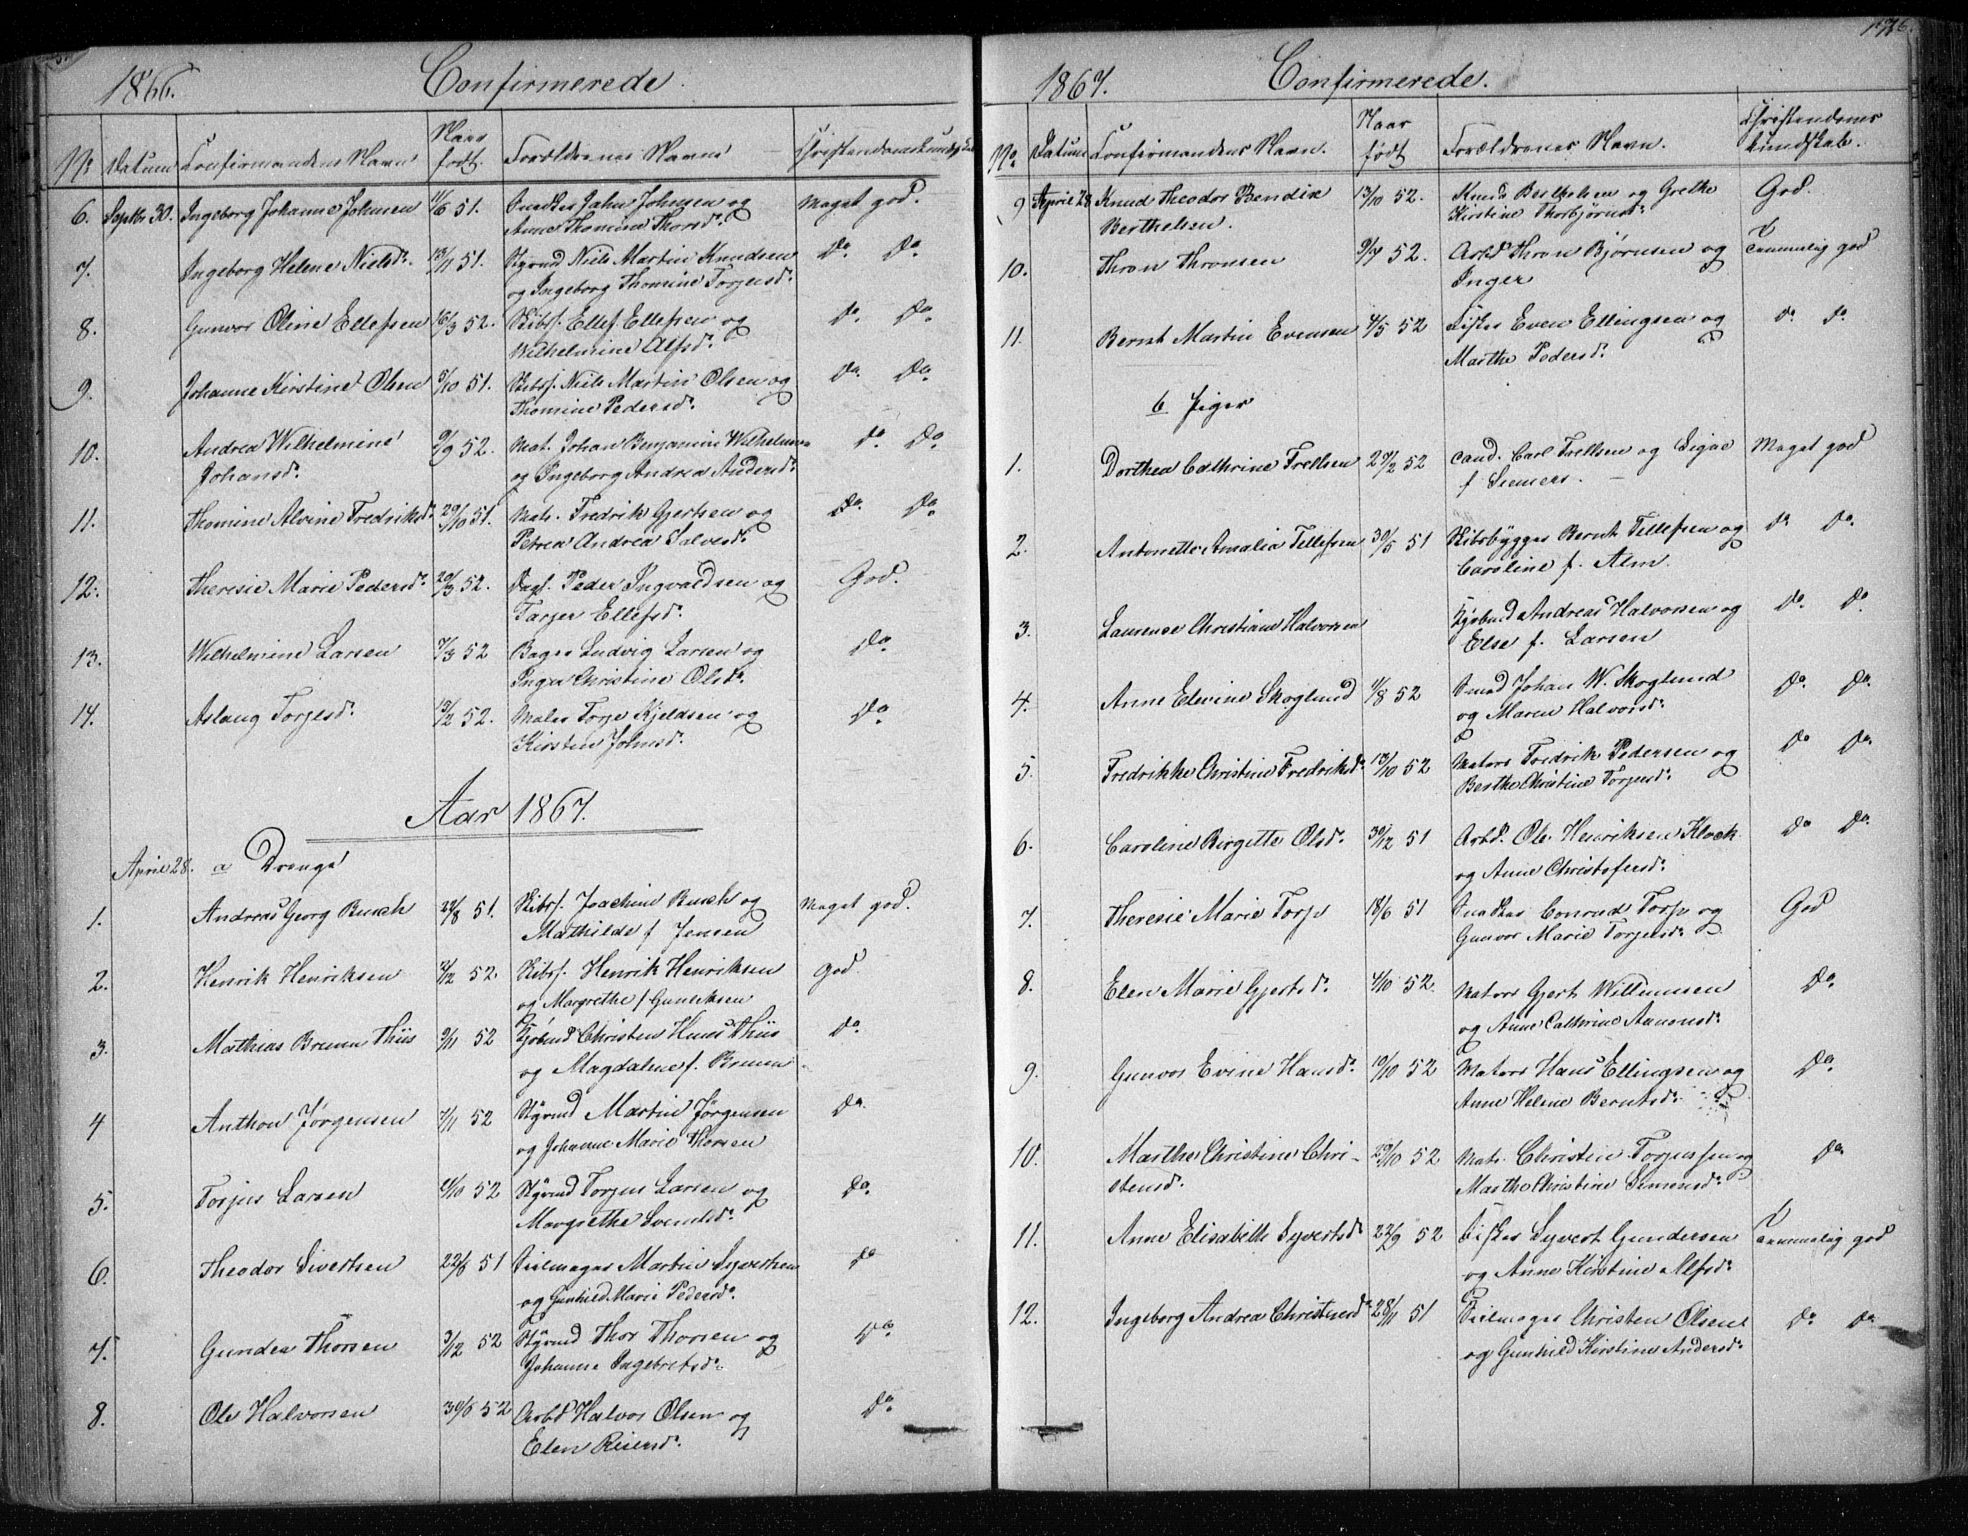 1866. Confirmerede.
No Datum Confirmandens Navn Naar født. Forældrenes Navne Christendomskundskab
6. Septbr 30. Ingeborg Johanne Johnsen 51. Snedker Jahn Johnsen og Meget god.
Anne Thomine Thorsd:
7. Ingeborg Helene Nielsd: 13/11 51. Styrmd Niels Martin Knudsen Do Do
og Ingeborg Thomine Torjusd:
8. Gunvor Oline Ellefsen 16/3 52. Skibsf. Ellef Ellefsen og Do Do
Wilhelmine Alfsd:
9. Johanne Kirstine Olsen 5/10 51. Skibsf. Niels Martin Olsen og Do Do
Thomine Pedersd:
10. Andrea Wilhelmine 9/9 52. Mat. Johan Benjamin Wilhelmsen Do Do
Johansd: og Ingeborg Andrea Andersd:
11. Thomine Alvine Fredriksd: 29/10 51. Matr. Fredrik Gjertsen og Do Do
Petrea Andrea Salvesd:
12. Theresie Marie Pedersd: 20/3 52. Dagl. Peder Ingvaldsen og God.
Tarjer Ellefsd:
13. Wilhelmine Larsen 7/3 52 Bager Ludvig Larsen og Do
Inger Christine Olsd:
14. Aslaug Torjesd: 13/2 52. Maler Torje Kjeldsen og Do
Kirsten Johnsd:
Aar 1867.
April 28. a Drenge
1. Andreas Georg Busch 22/8 51. Skibsf. Joachim Busch og Meget god.
Mathilde f Jensen
2. Henrik Henriksen 52. Skibsf. Henrik Henriksen God
og Margrethe f Gunleksen
3. Mathias Bruun Thiis 9/11 52 Kjøbmd Christen Huus Thiis Do
og Magdalene f. Bruun
4 Anthon Jørgensen 7/11 52 Styrmd Martin Jørgensen Do
og Johanne Marie Thorsen
5. Torjus Larsen 52 Styrmd Torjus Larsen og Do
Margrethe Svendsd:
6. Theodor Sivertsen 51 Seilmager Martin Syvertsen Do
og Gunhild Marie Pedersd:
7. Gunder Thorsen 3/12 52 Styrmd Thor Thorsen og Do
Johanne Ingebretsd:
8. Ole Halvorsen 52 Arbd Halvor Olsen og Do
Elen Reiersd:
176.
1867. Confirmerede.
No. Datum Confirmandens Navn. Naar født Forældrenes Navn. Christendoms kundskab.
9 April 28 Knud Theodor Bendix 13/10 52. Knud Berthelsen og Grethe God.
Berthelsen. Kirstine Thorbjørnsd:
10. Thron Thronsen 52. Arbd Thron Bjørnsen og Temmelig god
Inger
11. Bernt Martin Evensen 4/5 52 Fisker Even Ellingsen og Do Do
Marthe Pedersd:
b Piger
1. Dorthea Cathrine Frellsen 29/2 52 Cand. Carl Frellsen og Signe Meget god
f Siemers.
2. Antonette Amalia Tellefsen 30/5 51 Skibsbygger Bernt Tellefsen og Do Do
Caroline f. Alm.
3. Laurence Christiane Halvorsen Kjøbmd Andreas Halvorsen og Do Do
Else f. Larsen
4. Anne Edvine Skoglund 52 Smed Johan W. Skoglund Do Do
og Maren Halvorsd:
5. Fredrikke Christine Fredriksd: 13/10 52 Matros Fredrik Pedersen og Do Do
Berthe Christine Torjusd:
6. Caroline Birgitte Olsd: 30/12 51 Arbd. Ole Henriksen Klock Do Do
og Anne Christofersd:
7. Theresie Marie Torp 18/6 51 Snedker Conrad Torp og God
Gunvor Marie Torjusd:
8. Elen Marie Gjertsd: 4/10 52 Matros Gjert Willumsen Do
og Anne Cathrine Aanonsd:
9. Gunvor Evine Hansd: 10/10 52 Matros Hans Ellingsen og Do
Anne Helene Berntsd:
10. Marthe Christine Chri- 52 Matr. Christen Torjussen og Do
stensd: Marthe Christine Simensd:
11. Anne Elisabeth Syvertsd: 22/9 52 Fisker Syvert Gundersen Temmelig god
og Anne Kirstine Alfsd:
12. Ingeborg Andrea Christensd: 28/11 51 Seilmager Christen Olsen Do Do
og Gunhild Kirstine Andersd: